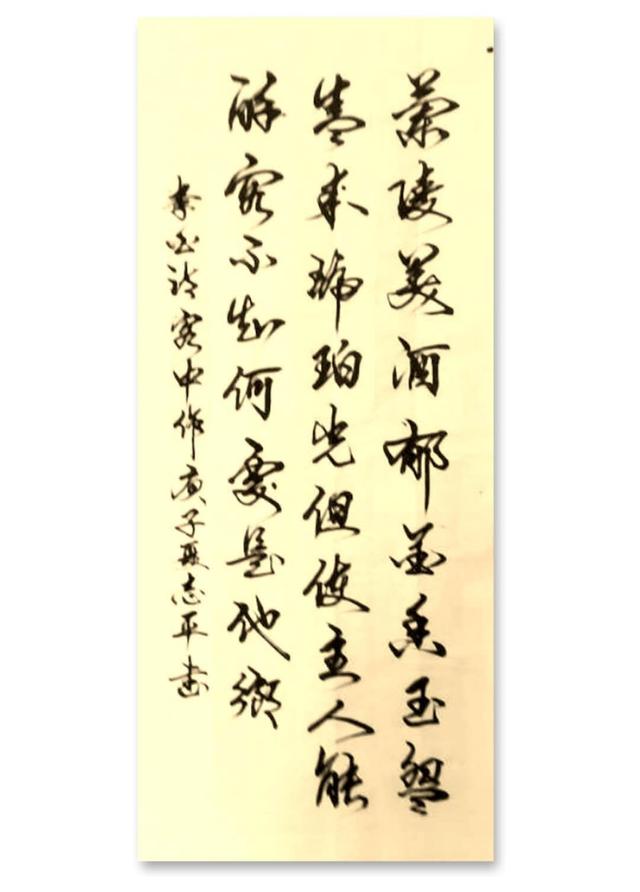 蘭陵美酒郁金香玉盌
盛来琥珀光但使主人能
醉客不知何處是他鄉
李白詩客中作庚子夏志平書